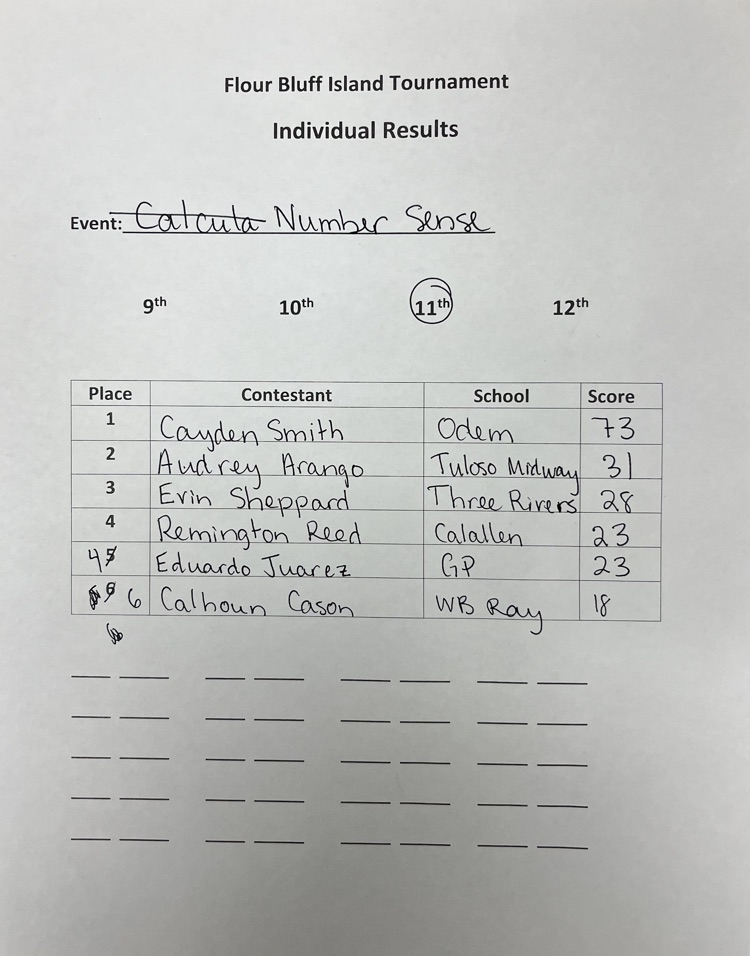 Flour Bluff Island Tournament
Individual Results
Event: Calcuta Number Sense
9th 10th 11th 12th
Place Contestant School Score
1 Cayden Smith Odem 73
2 Audrey Arango Tuloso Midway 31
3 Evin Sheppard Three Rivers 28
4 Remington Reed Calallen 23
4 5 Eduardo Juarez GP 23
6 Calhoun Cason WB Ray 18